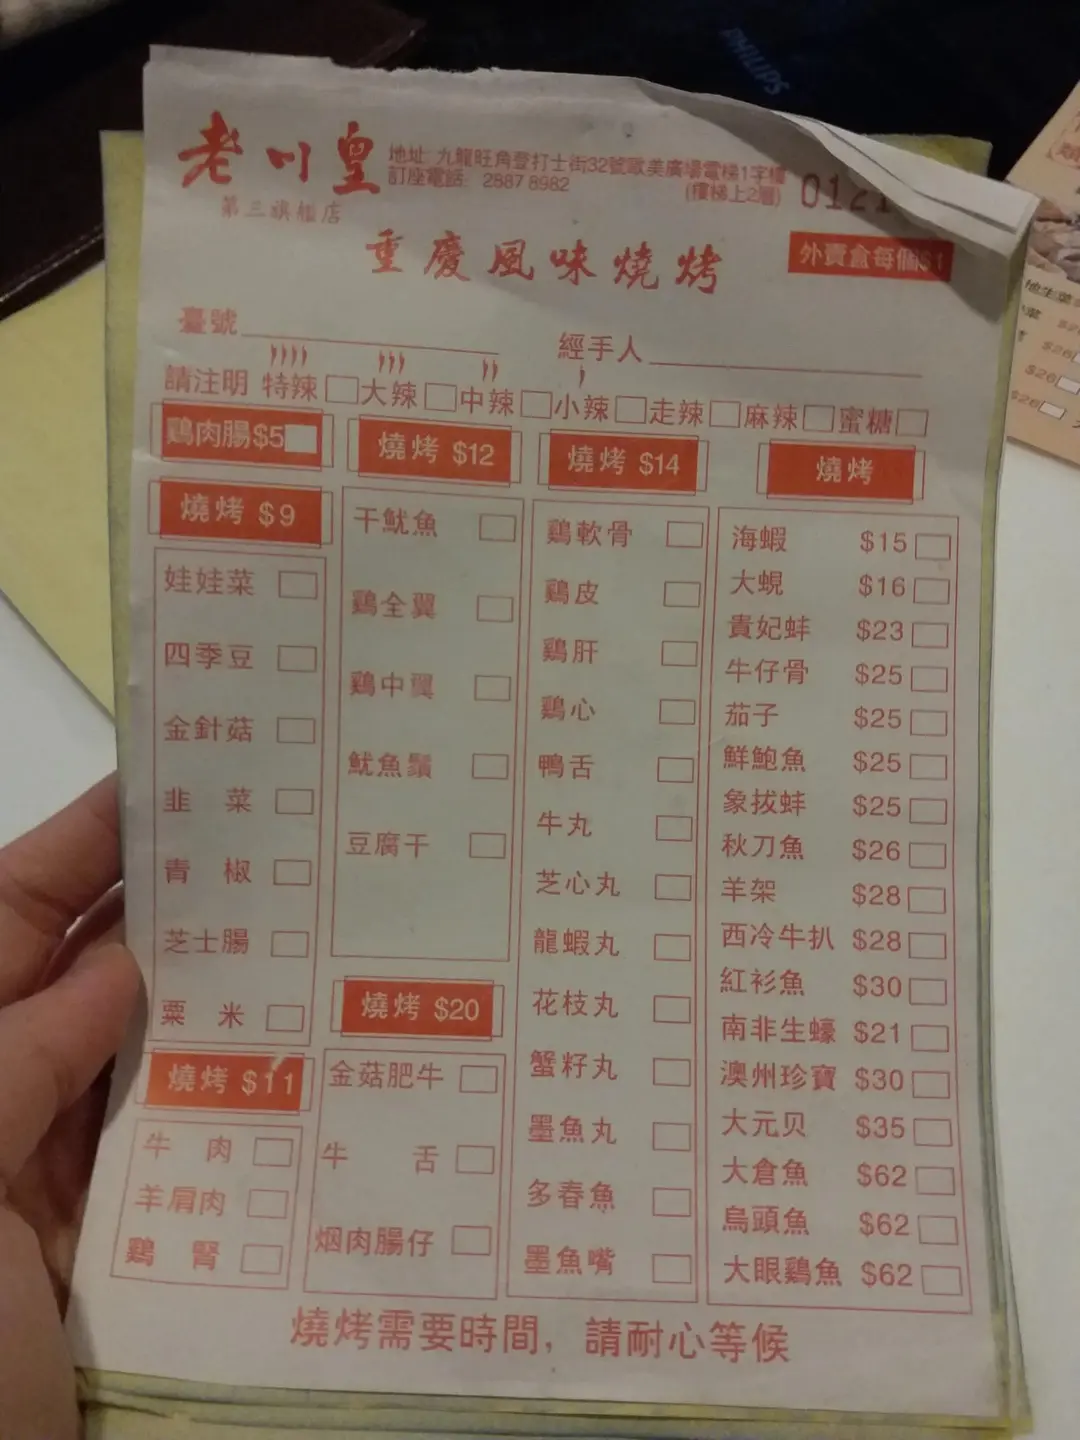 PHILIPS
老川皇
第三旗艦店
地址: 九龍旺角登打士街32號歐美廣場電梯1字樓
(樓梯上2層)
訂座電話: 2887 8982
0121
重慶風味燒烤
外賣盒每個$1
臺號
經手人
請注明 特辣 大辣 中辣 小辣 走辣 麻辣 蜜糖
鷄肉腸$5
燒烤 $9
娃娃菜
四季豆
金針菇
韭菜
青椒
芝士腸
粟米
燒烤 $11
牛肉
羊肩肉
鷄腎
燒烤 $12
干魷魚
鷄全翼
鷄中翼
魷魚鬚
豆腐干
燒烤 $20
金菇肥牛
牛舌
烟肉腸仔
燒烤 $14
鷄軟骨
鷄皮
鷄肝
鷄心
鴨舌
牛丸
芝心丸
龍蝦丸
花枝丸
蟹籽丸
墨魚丸
多春魚
墨魚嘴
燒烤
海蝦 $15
大蜆 $16
貴妃蚌 $23
牛仔骨 $25
茄子 $25
鮮鮑魚 $25
象拔蚌 $25
秋刀魚 $26
羊架 $28
西冷牛扒 $28
紅衫魚 $30
南非生蠔 $21
澳州珍寶 $30
大元贝 $35
大倉魚 $62
烏頭魚 $62
大眼鷄魚 $62
燒烤需要時間，請耐心等候
$26
$26
$26